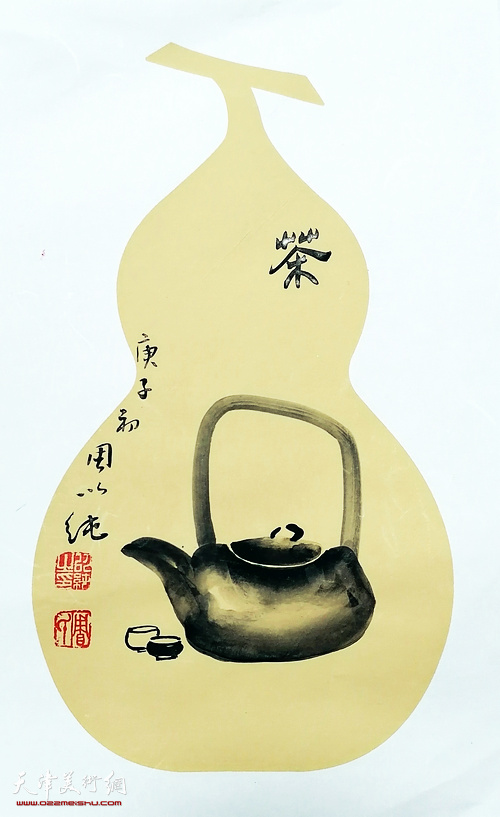 茶
庚子初周以纯
天津美術網
www.022meishu.com